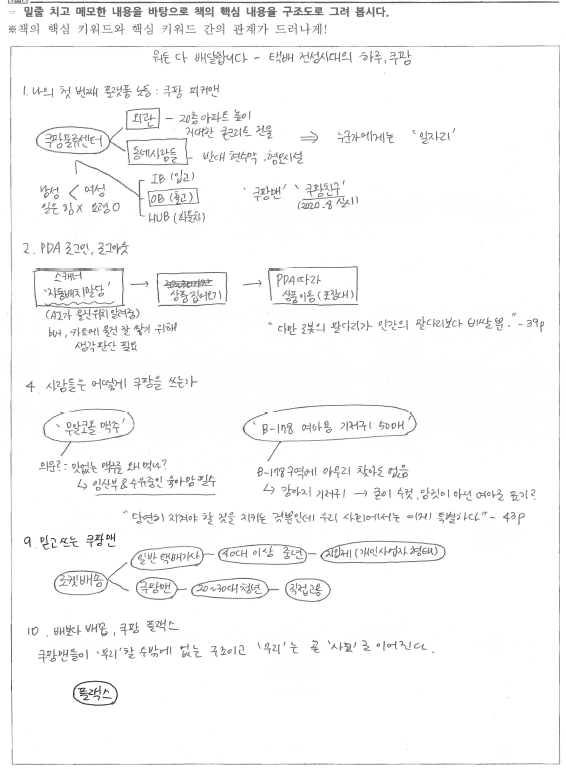 밑줄 치고 메모한 내용을 바탕으로 책의 핵심 내용을 구조도로 그려 봅시다.
※책의 핵심 키워드와 핵심 키워드 간의 관계가 드러나게!
뭐든 다 배달합니다 - 택배 전성시대의 하루, 쿠팡
1. 나의 첫 번째 플랫폼 노동 : 쿠팡 피커맨
쿠팡물류센터
외관 - 20층 아파트 높이
거대한 콘크리트 건물
동네사람들 - 반대 현수막, 혐오시설
⇒ 누군가에게는 '일자리'
남성 < 여성
일은 힘 X 요령 O
IB (입고)
OB (출고)
HUB (
'쿠팡맨' '쿠팡친구'
(2020.8 실시)
2. PDA 로그인, 로그아웃
스캐너
'자동배치할당'
(AI가 물건위치 알려줌)
but, 카트에 물건 잘 쌓기 위해
생각판단 필요
→ 상품 집어오기
→ PDA 따라
상품이동 (포장대)
"다만 로봇의 팔다리가 인간의 팔다리보다 비쌀 뿐." - 39p
4. 사람들은 어떻게 쿠팡을 쓰는가
'무알코올 맥주'
의문? : 맛없는 맥주를 왜 먹나?
↳ 임산부 & 수유중인 육아맘 필수
'B-178 여아용 기저귀 50매'
B-178구역에 아무리 찾아도 없음
↳ 강아지 기저귀 → 굳이 수컷, 암컷이 아닌 여아로 표기?
"당연히 지켜야 할 것을 지키는 것뿐인데 우리 사회에서는 이게 특별하다" - 43p
9. 믿고 쓰는 쿠팡맨
로켓배송
일반 택배기사 - 40대 이상 중년 - 지입제 (개인사업자 형태)
쿠팡맨 - 20~30대 청년 - 직접고용
10. 배보다 배꼽, 쿠팡 플렉스
쿠팡맨들이 '무리'할 수밖에 없는 구조이고 '무리'는 곧 '사고'로 이어진다.
플랙스